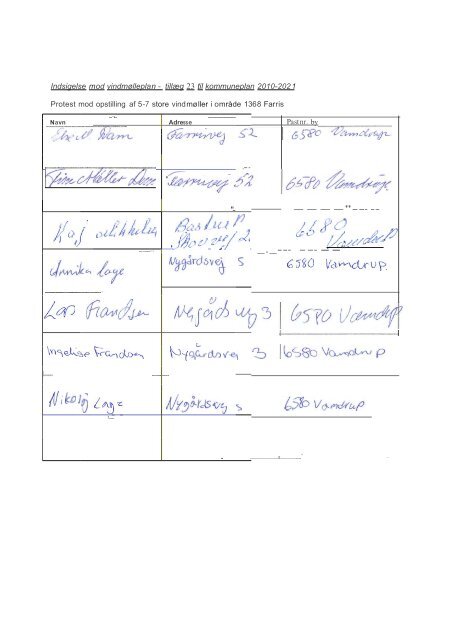 Indsigelse mod vindmølleplan - tillæg 23 til kommuneplan 2010-2021
Protest mod opstilling af 5-7 store vindmøller i område 1368 Farris
Navn Adresse Postnr. by
Dam Farrisvej 52 6580 Vamdrup
Møller Dam Farrisvej 52 6580 Vamdrup
Kaj Bastrup 6580
Vamdrup
Annika Lage Nygårdsvej 5 6580 Vamdrup.
Lars Frandsen Nygårdsvej 3 6580 Vamdrup
Ingelise Frandsen Nygårdsvej 3 6580 Vamdrup
Nikolaj Lage Nygårdsvej 5 6580 Vamdrup